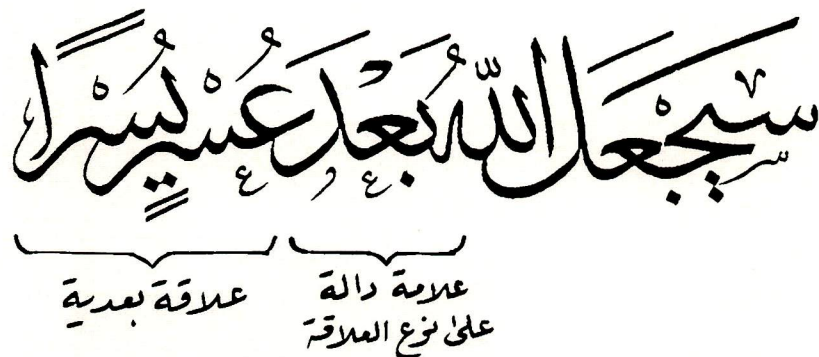 سَيَجْعَلُ اللّٰهُ بَعْدَ عُسْرٍ يُسْرًا
علامة دالة
على نوع العلاقة
علاقة بعدية